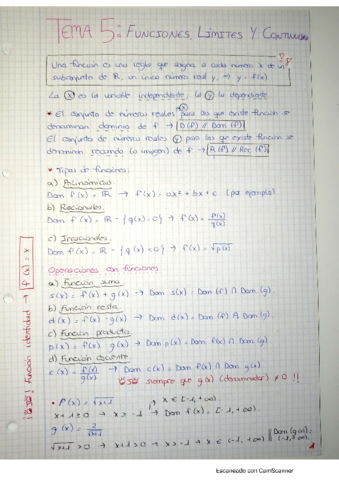 TEMA 5: FUNCIONES, LÍMITES Y CONTINUIDAD
Una función es una regla que asigna a cada número x de un
subconjunto de ℝ, un único número real y, ⇒ y = f(x)
La (x) es la variable independiente; la (y) la dependiente.
* El conjunto de números reales (x) para los que existe función se
denominan dominio de f → D(f) // Dom (f)
El conjunto de números reales (y) para los que existe función se
denominan recorrido (o imagen) de f → R(f) // Rec (f)
* Tipos de funciones:
a) Polinómicas
Dom f(x) = ℝ → f(x) = ax² + bx + c (por ejemplo)
b) Racionales
Dom f(x) = ℝ - {g(x) = 0} → f(x) = P(x)/g(x)
c) Irracionales
Dom f(x) = ℝ - {g(x) < 0} → f(x) = √p(x)
Operaciones con funciones
a) Función suma
s(x) = f(x) + g(x) → Dom s(x) = Dom (f) ∩ Dom (g).
b) Función resta
d(x) = f(x) - g(x) → Dom d(x) = Dom (f) ∩ Dom (g).
c) Función producto
p(x) = f(x) · g(x) → Dom p(x) = Dom f(x) ∩ Dom (g).
d) Función cociente
c(x) = f(x)/g(x) → Dom c(x) = Dom f(x) ∩ Dom g(x)
siempre que g(x) (denominador) ≠ 0 !!
Función identidad → f(x) = x
• f(x) = √x+1
x ∈ [-1, +∞).
x+1 ≥ 0 → x ≥ -1 → Dom f(x) = [-1, +∞).
g(x) = 2/√x+1
√x+1 > 0 → x+1 > 0 → x > -1 → x ∈ (-1, +∞)
Dom (g(x)) = (-1, +∞).
Escaneado con CamScanner